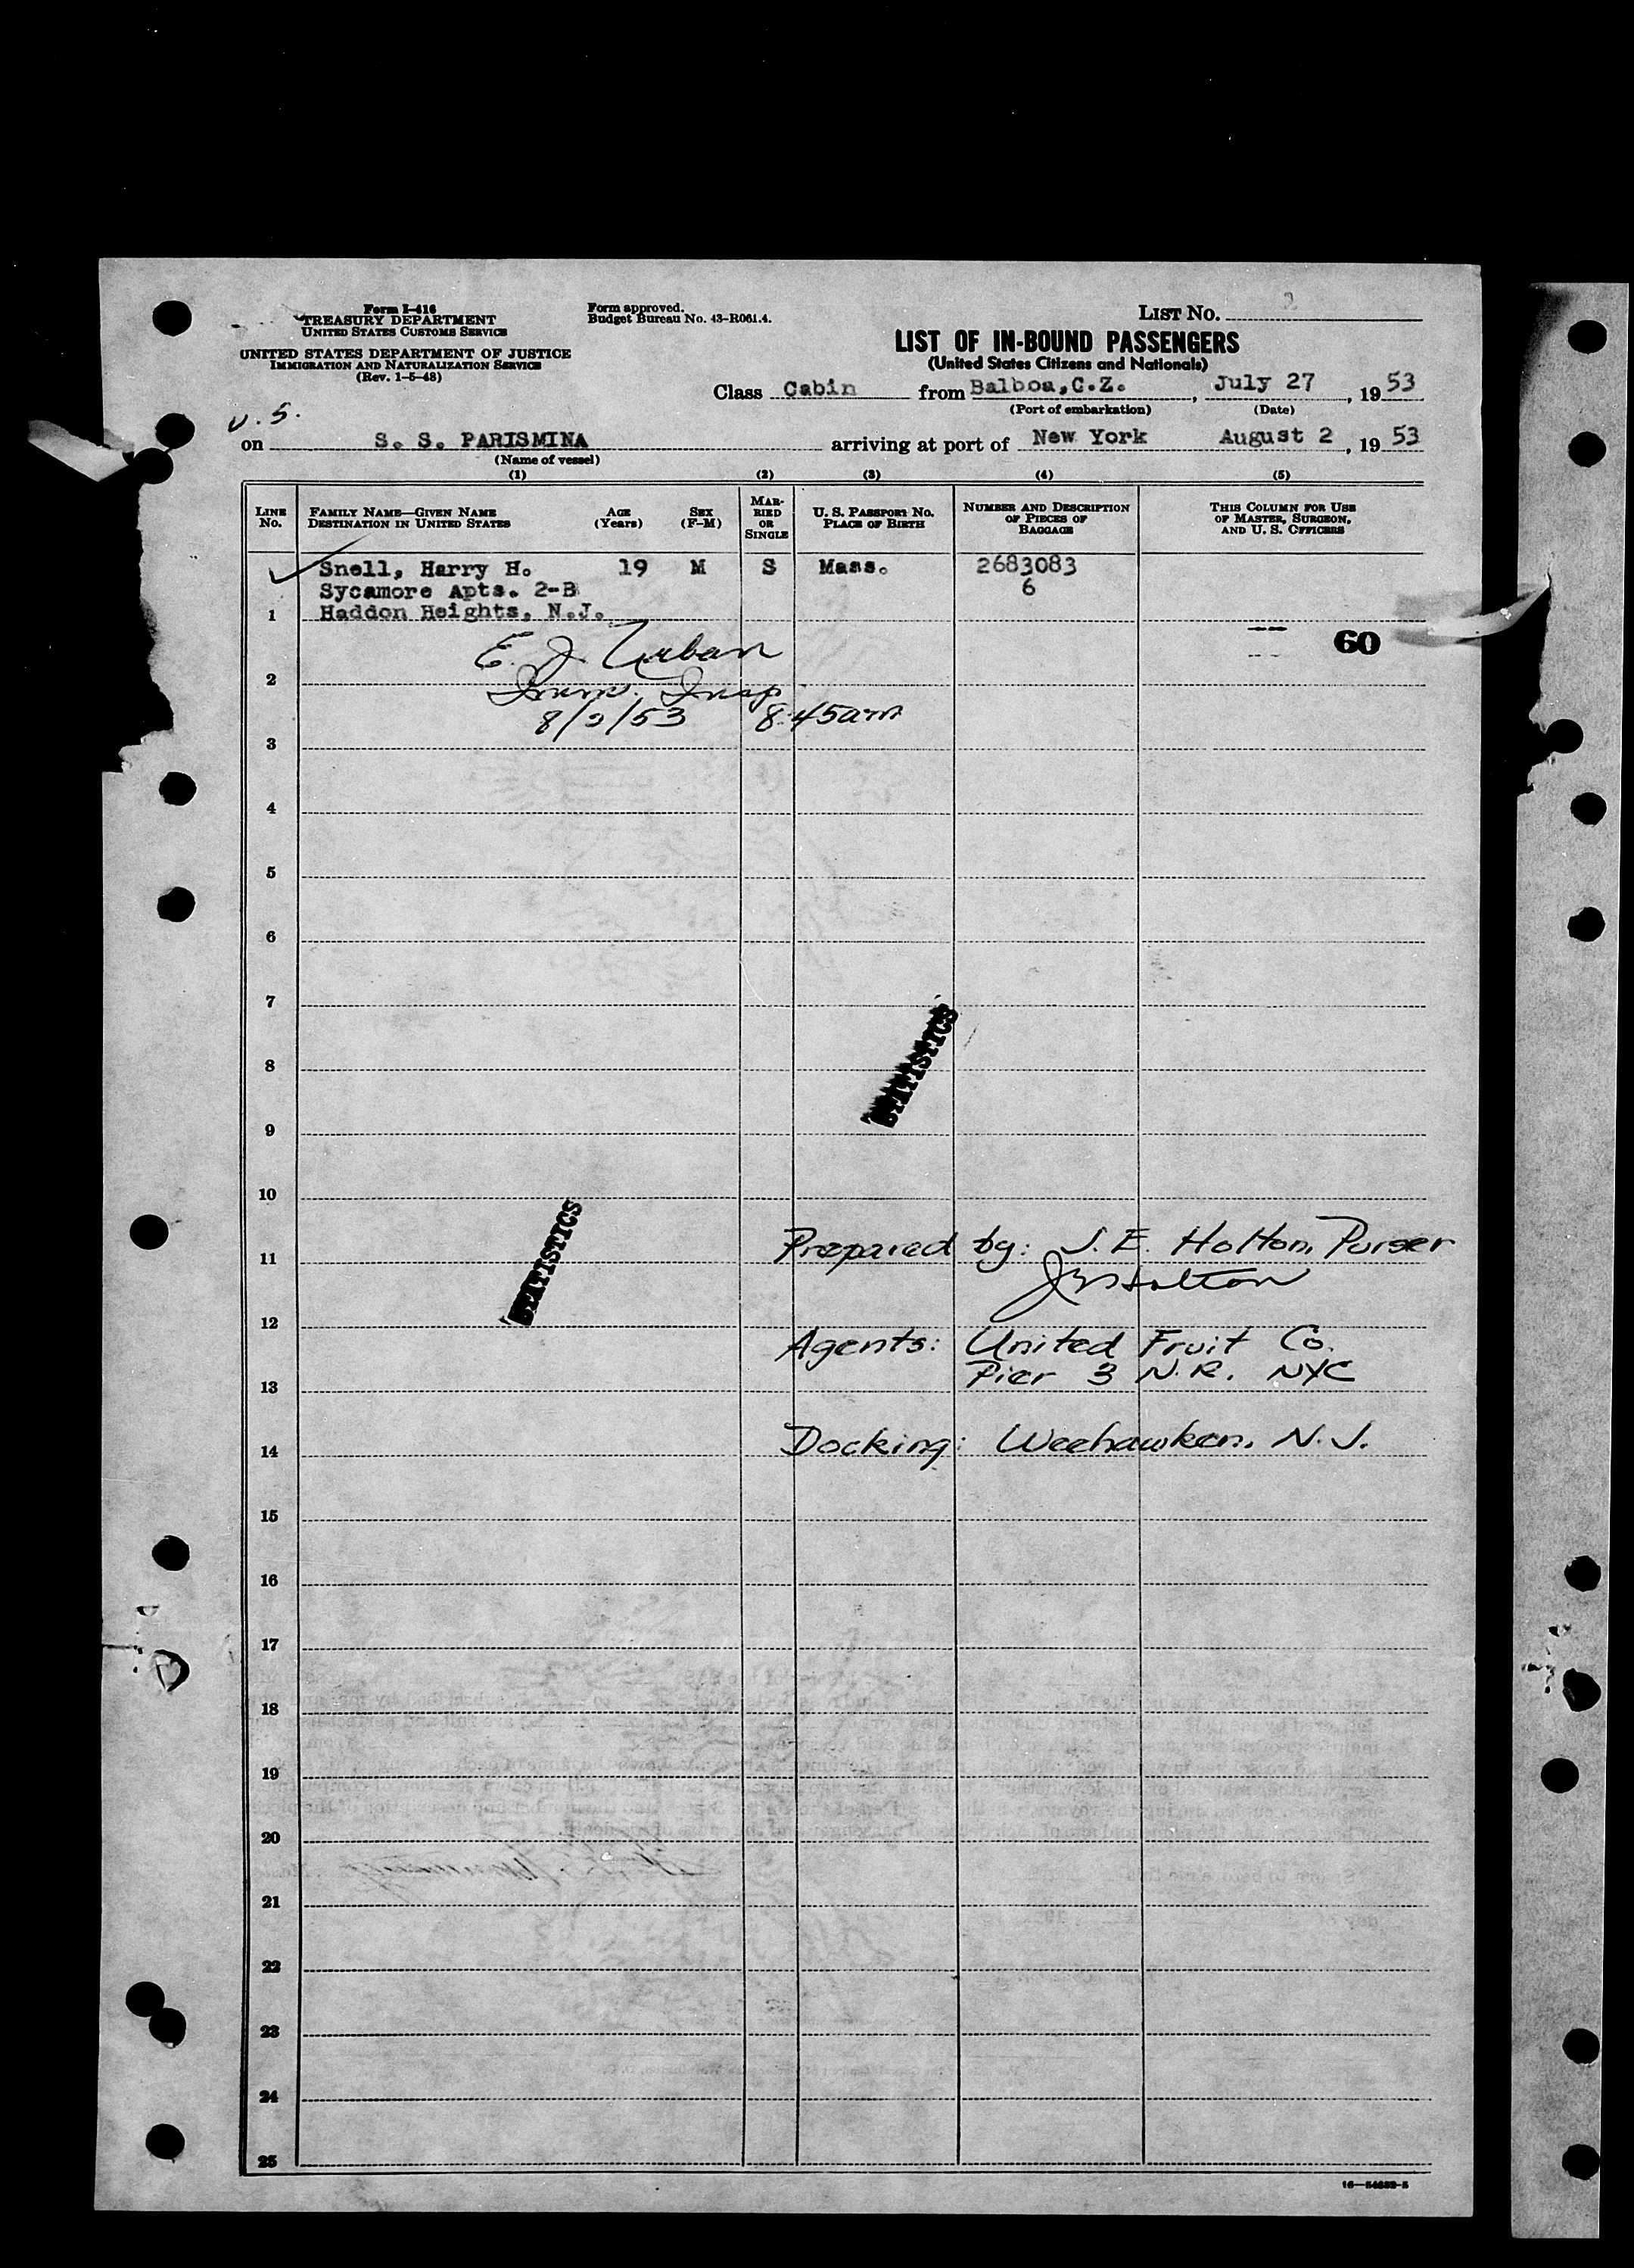 Form I-416
TREASURY DEPARTMENT
UNITED STATES CUSTOMS SERVICE
UNITED STATES DEPARTMENT OF JUSTICE
IMMIGRATION AND NATURALIZATION SERVICE
(Rev. 1-5-48)
Form approved.
Budget Bureau No. 43-R061.4.
LIST No. 2
LIST OF IN-BOUND PASSENGERS
(United States Citizens and Nationals)
Class Cabin from Balboa, C.Z. , July 27 , 19 53
(Port of embarkation) (Date)
U.S.
on S. S. PARISMINA arriving at port of New York August 2 , 19 53
(Name of vessel)
(1) (2) (3) (4) (5)
LINE No. FAMILY NAME—GIVEN NAME DESTINATION IN UNITED STATES AGE (Years) SEX (F-M) MARRIED OR SINGLE U. S. PASSPORT NO. PLACE OF BIRTH NUMBER AND DESCRIPTION OF PIECES OF BAGGAGE THIS COLUMN FOR USE OF MASTER, SURGEON, AND U. S. OFFICERS
Snell, Harry H. 19 M S Mass. 2683083
Sycamore Apts. 2-B 6
1 Haddon Heights, N.J.
60
E. J. Urban
2 Imm. Insp
8/2/53 8:45am
3
4
5
6
7
8
STATISTICS
9
10
11 Prepared by: J. E. Holton, Purser
JE Holton
STATISTICS
12
Agents: United Fruit Co.
13 Pier 3 N.R. NYC
14 Docking: Weehawken, N.J.
15
16
17
18
19
20
21
22
23
24
25